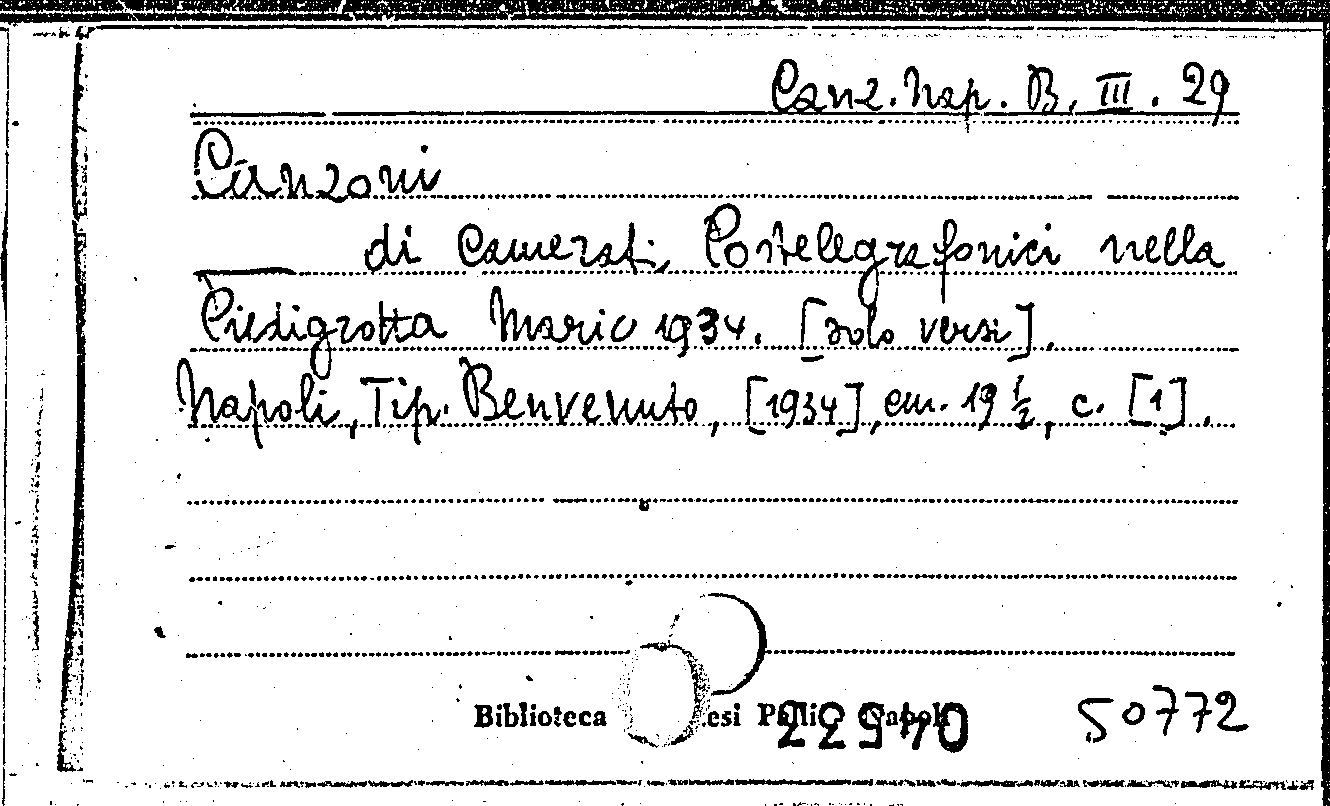 Canz. Nap. B. III. 29
Canzoni
di Camerati Postelegrafonici nella
Piedigrotta Mario 1934. [solo versi].
Napoli, Tip. Benvenuto, [1934], cm. 19 ½, c. [1].
Biblioteca esi Palli Napoli
50772